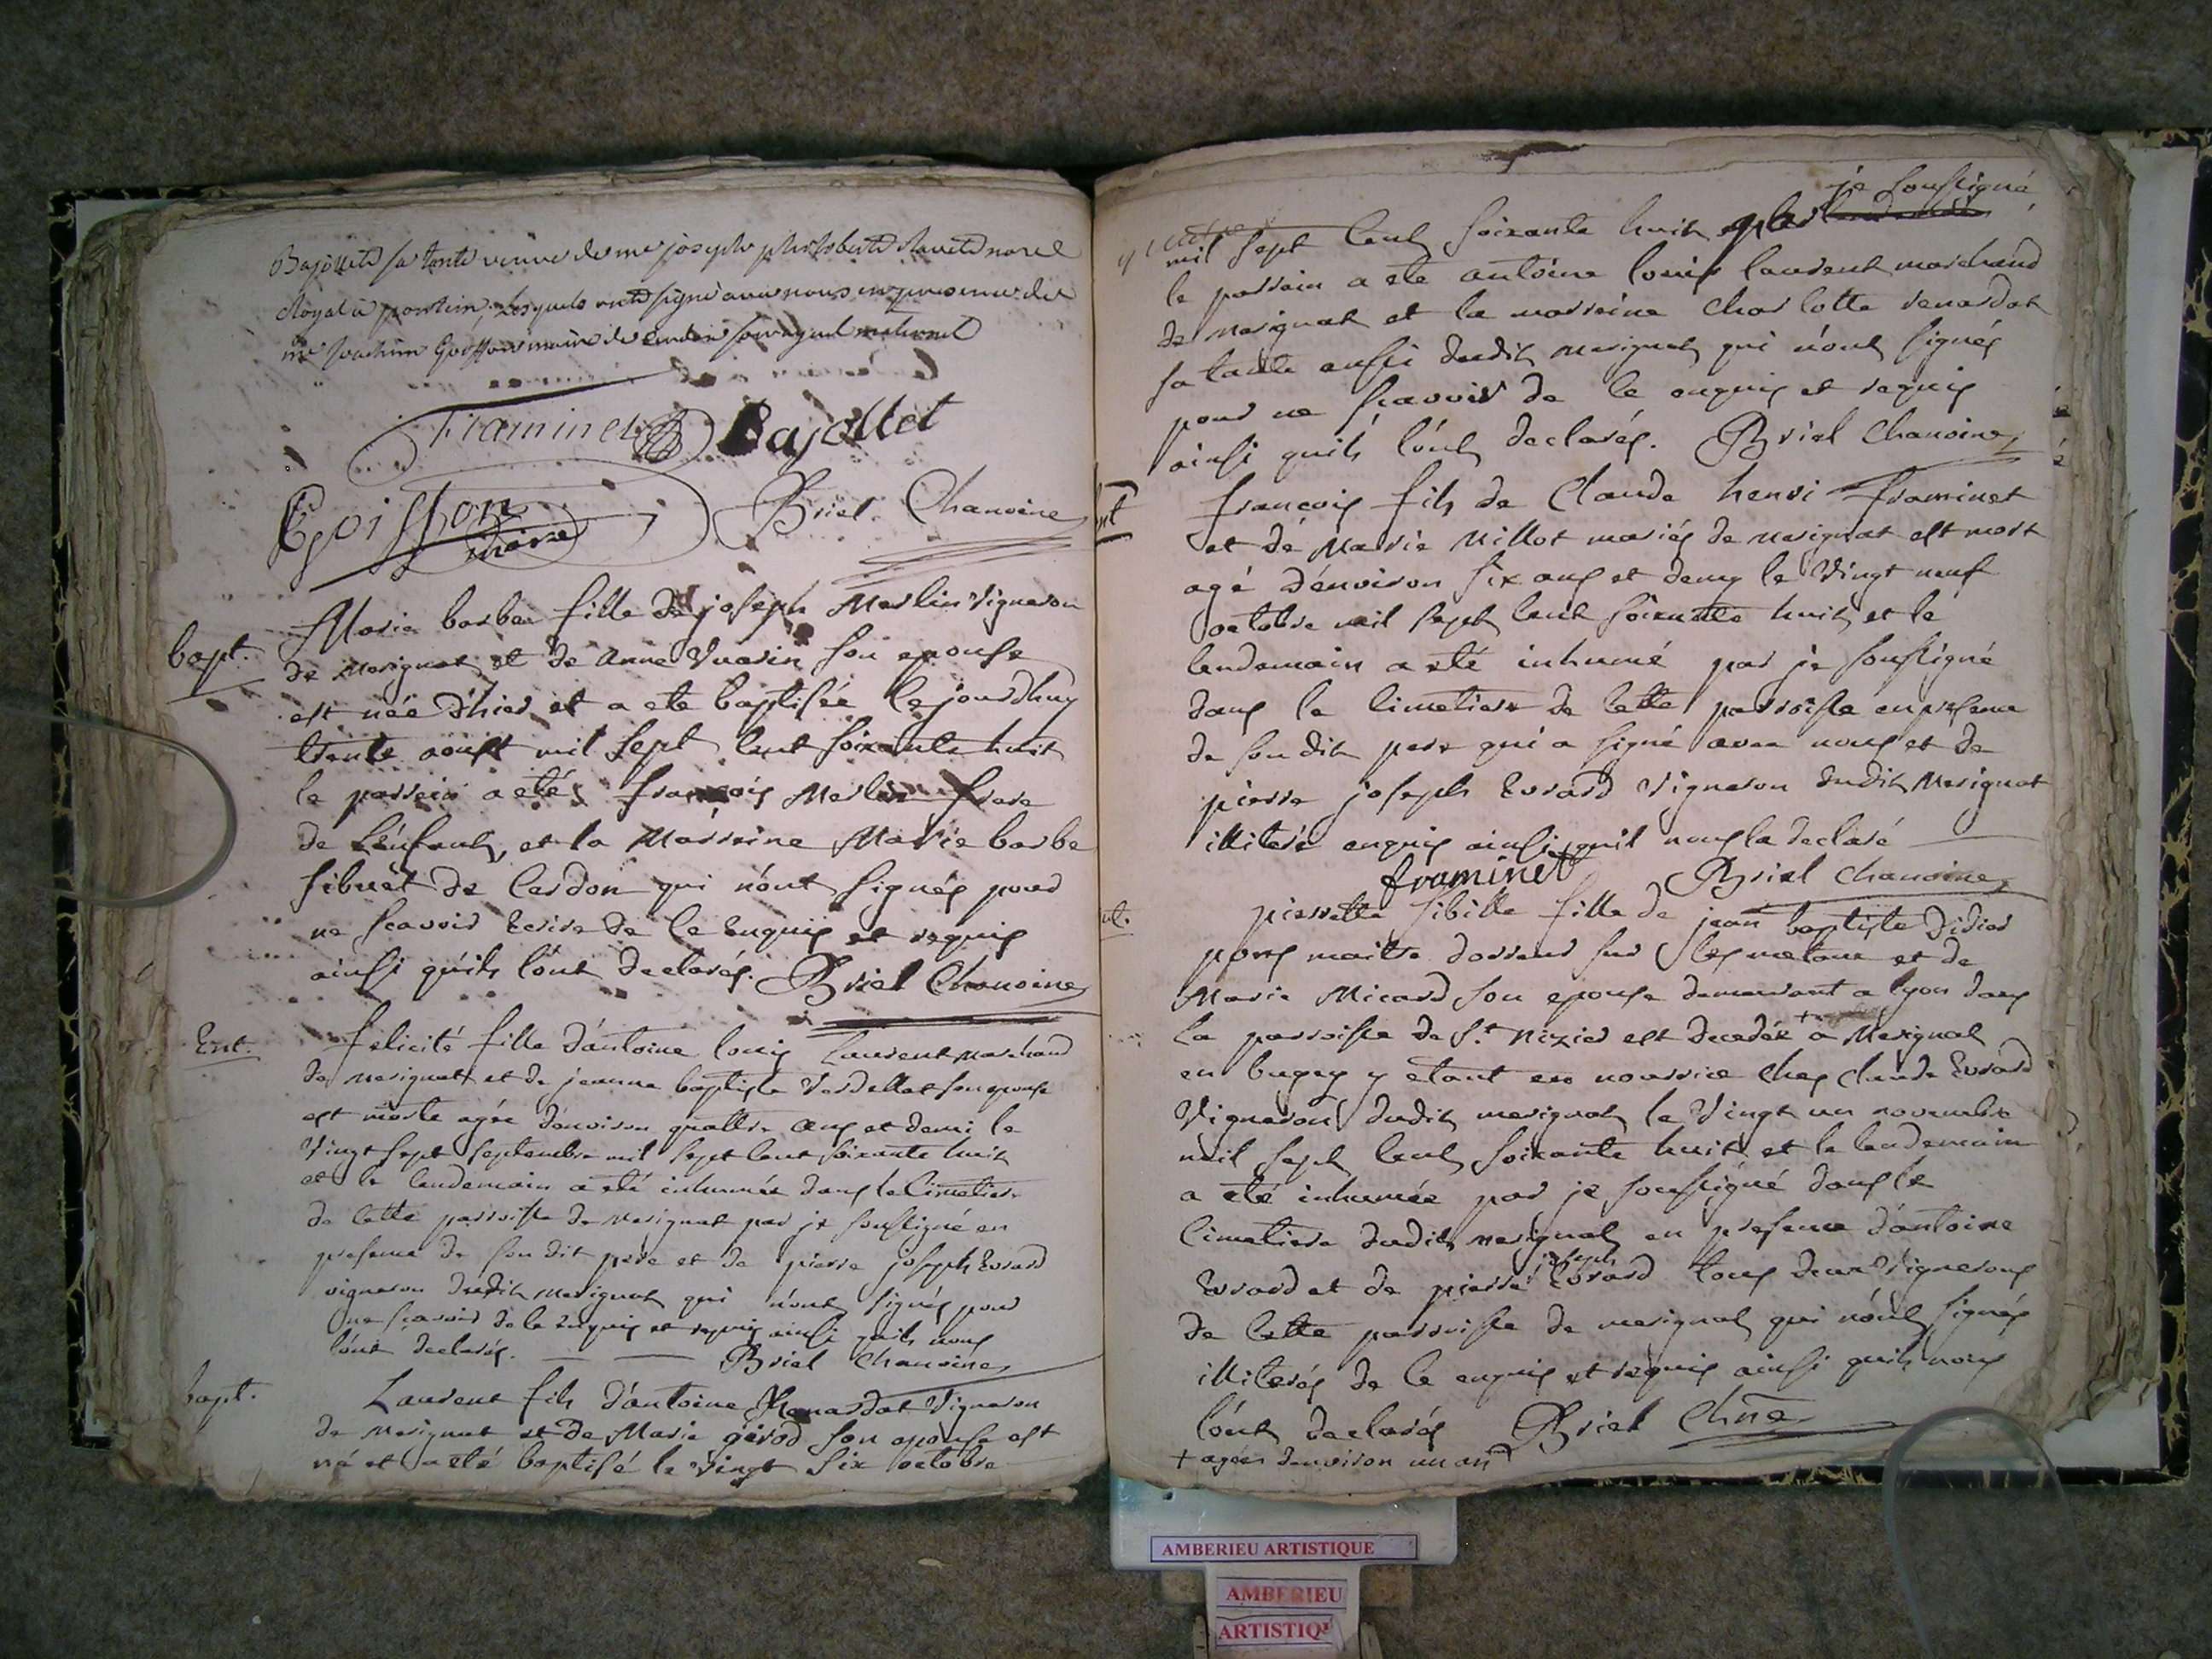 Bajollet sa tante veuve de me joseph
royal a poncin, Lesquels ont signé avec nous en presence de
me Joachim Goiffon maire de Cerdon
Framinet Bajollet
Goiffon Briel Chanoine
maire
bapt. Marie barbe fille de joseph Merlin Vigneron
de Merignat et de Anne Vuarin son epouse
est née d'hier et a ete baptisée le jourdhuy
trente aoust mil sept cent soixante huit
le parrein a eté françois Merlin frere
de L'énfant, et la Marreine Marie barbe
sibuet de Cerdon qui n'ont signés pour
ne scavoir Ecrire de ce Enquis et requis
ainsi quils l'ont declarés. Briel Chanoine
Ent. felicité fille d'antoine louis Laurent marchand
de merignat et de jeanne baptiste Verdellet son epouse
est morte agée d'environ quattre ans et demi le
Vingt sept septembre mil sept cent soixante huit
et le lendemain a eté inhumée dans le Cimetiere
de cette parroisse de merignat par je soussigné en
presence de son dit pere et de pierre joseph Evrard
vigneron dudit Merignat qui n'ont signés pour
ne scavoir de ce Enquis et requis ainsi quils nous
l'ont declarés. Briel Chanoine
bapt. Laurent fils d'antoine Renardat Vigneron
de Merignat et de Marie girod son epouse est
né et a eté baptisé le Vingt six octobre
je soussigné
mil sept cent soixante huit par
le parrein a ete antoine louis laurent marchand
de merignat et la marreine Charlotte renardat
sa tante aussi dudit merignat qui n'ont signés
pour ne scavoir de ce enquis et requis
ainsi quils l'ont declarés. Briel Chanoine
françois fils de Claude henri framinet
et de Marie Millot mariés de merignat est mort
agé d'environ six ans et demy le Vingt neuf
octobre mil sept cent soixante huit et le
lendemain a eté inhumé par je soussigné
dans le Cimetiere de cette parroisse en presence
de son dit pere qui a signé avec nous et de
pierre joseph Evrard Vigneron dudit Merignat
illiteré enquis ainsi quil nous la declaré
framinet Briel Chanoine
pierrette sibille fille de jean baptiste Didier
pons maitre doreur sur les metaux et de
Marie Micard son epouse demeurant a lyon dans
La parroisse de St. Nizier est decedée + a Merignat
en bugey y etant en nourrice chez Claude Evrard
Vigneron dudit merignat le Vingt un novembre
mil sept cent soixante huit et le lendemain
a eté inhumée par je soussigné dans le
Cimetiere dudit merignat en presence d'antoine
joseph
Evrard et de pierre Evrard tous deux Vignerons
de cette parroisse de merignat qui n'ont signés
illiterés de ce enquis et requis ainsi quils nous
l'ont declarés Briel Chne
+ agée denviron un an
AMBERIEU ARTISTIQUE
AMBERIEU
ARTISTIQ